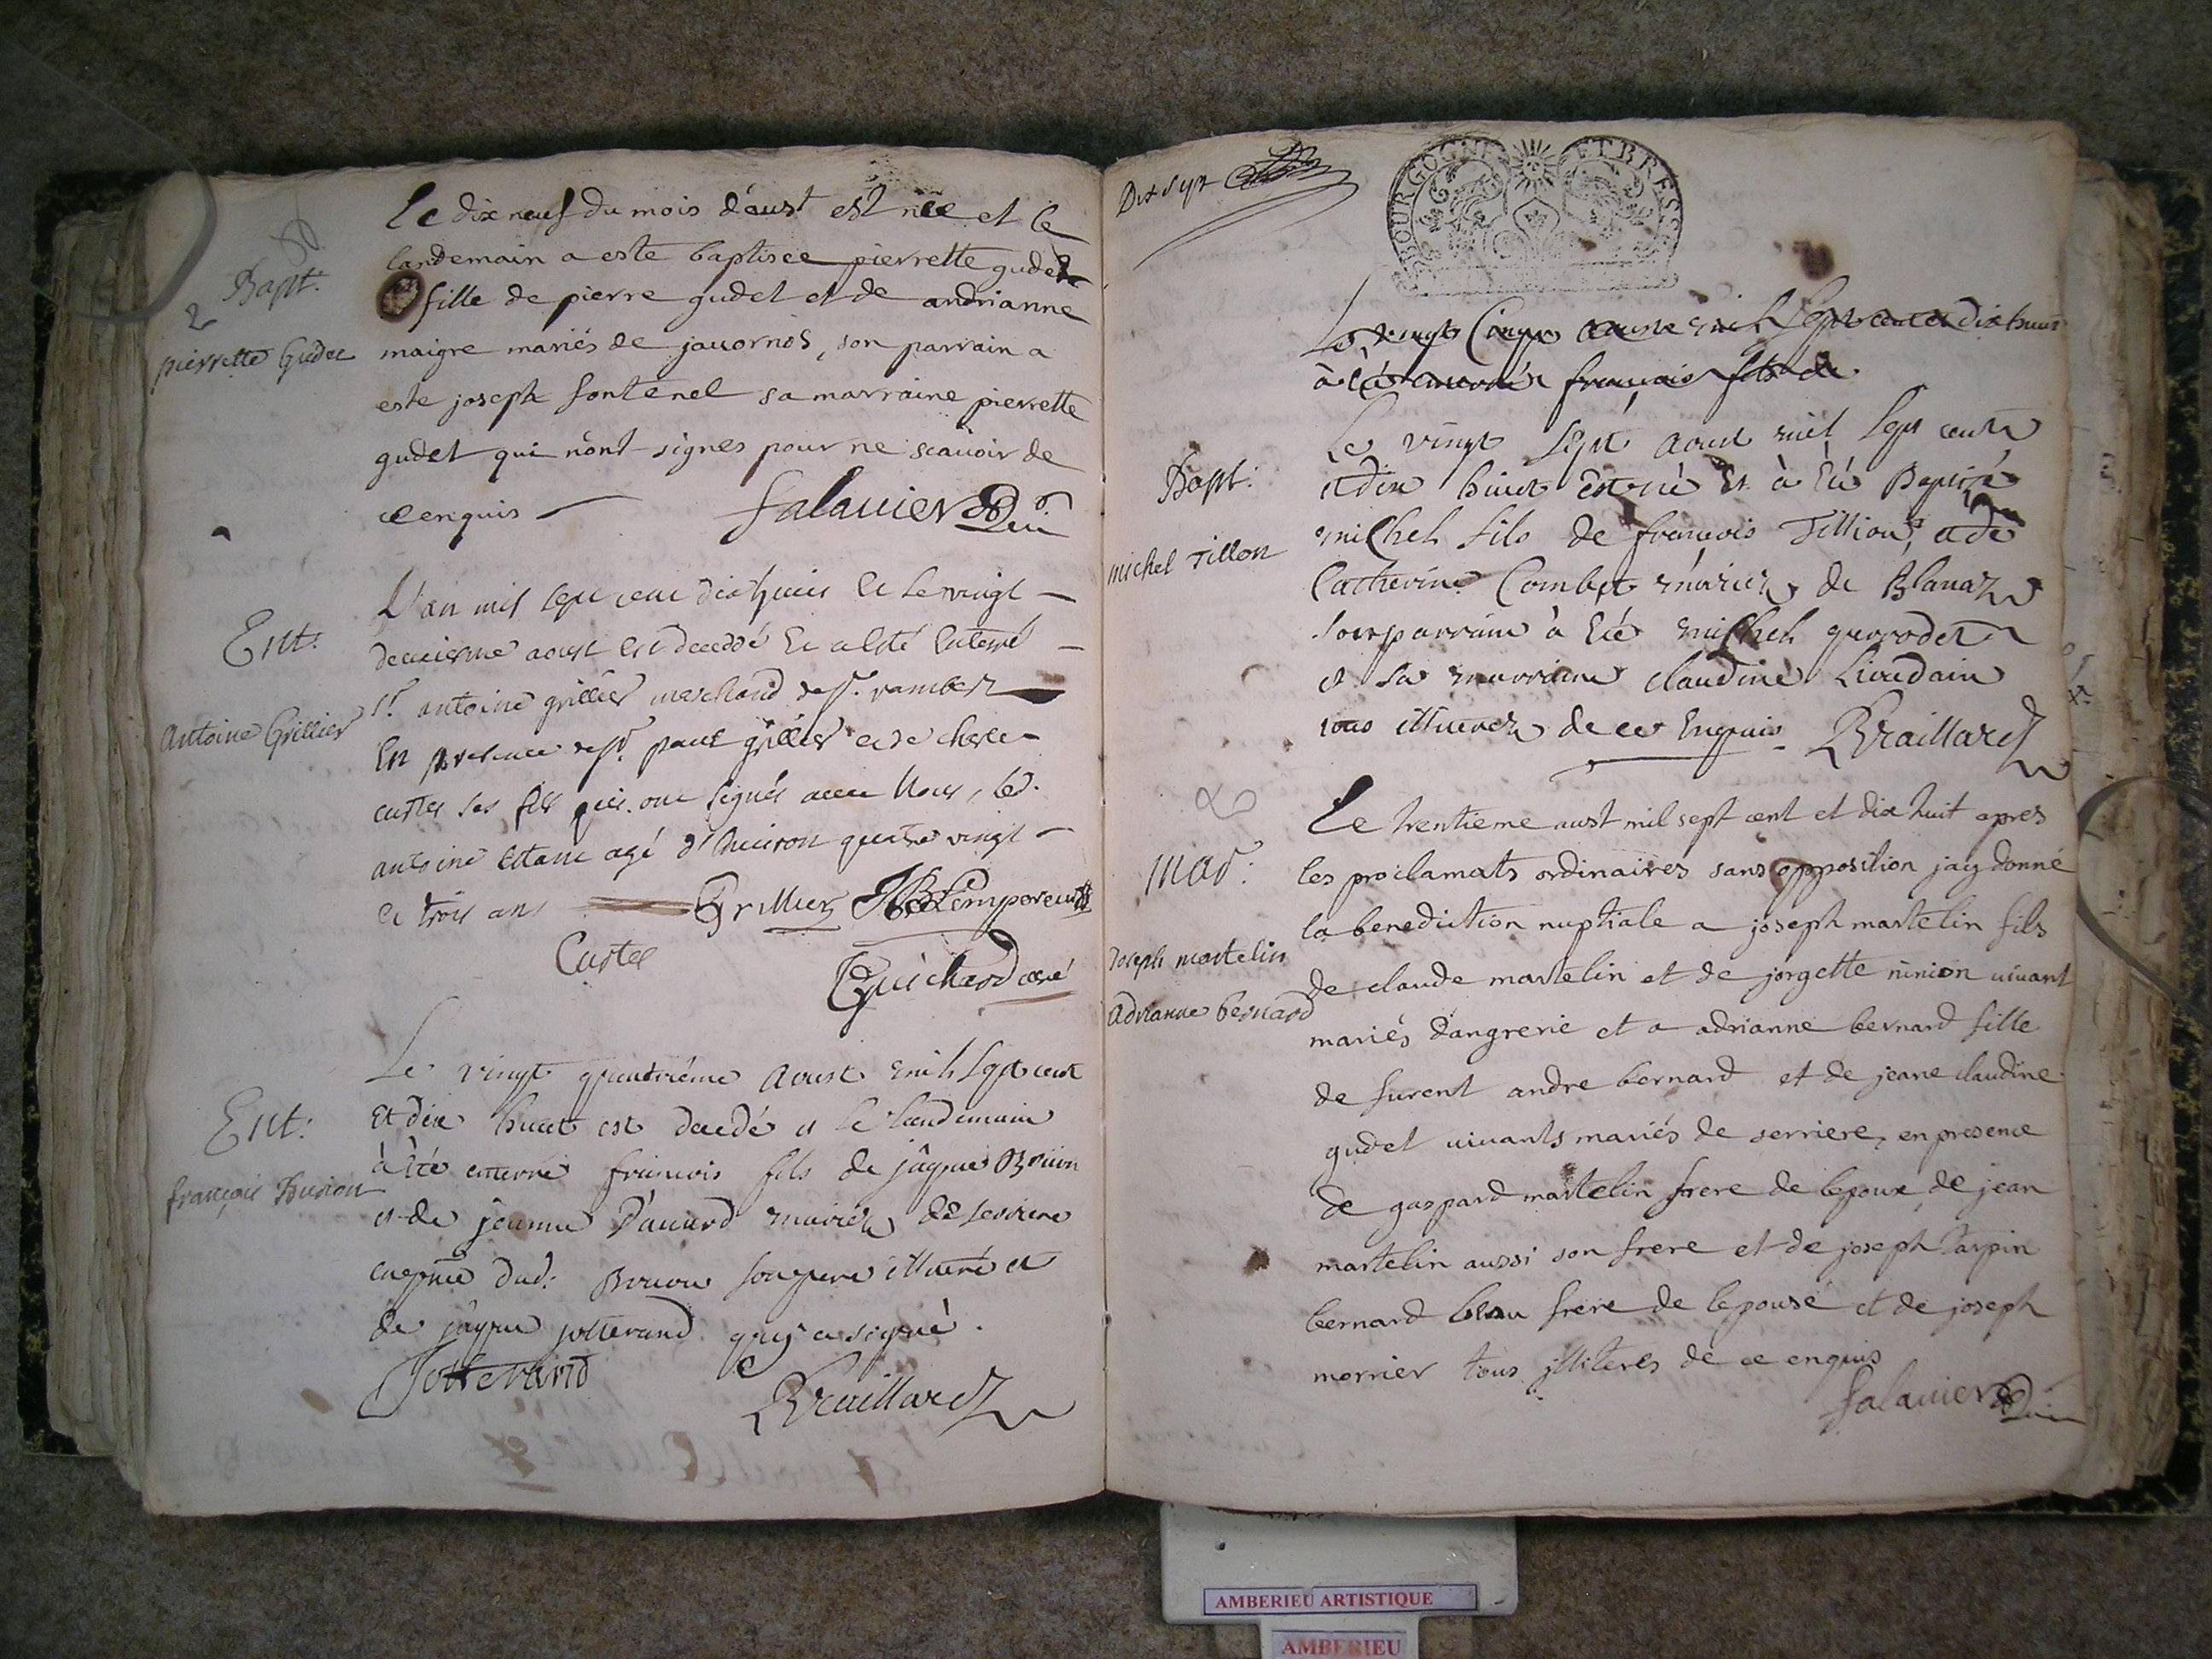 Le dix neuf du mois d'aust est née et le
landemain a este baptisee pierrette gudet
Bapt.
2
fille de pierre gudet et de andrianne
pierrette Gudet
maigre mariés de jauornos, son parrain a
este joseph fontenel sa marraine pierrette
gudet qui n'ont signes pour ne scauoir de
ce enquis
falauier
L'an mil sept cent dix huict et le vingt
Ent:
deuxiesme aoust est decedé et a esté enterré
Sr. antoine grillier marchand de st. rambert
Antoine Grillier
En presence de sr. paul grillier et de
custes ses fils qui ont signés auec Nous, led.
antoine estant agé d'enuiron quatre vingt
et trois ans
Grillier JB Lempereur
Custes
Guichard curé
Le vingt quatriéme Aoust mil sept cent
Ent:
Et dix huit est decedé et le landemain
à été enterré francois fils de jâque
françois
et de jeanne Dauard mariez de serriere
dud: son pere illiteré et
de jâque jotterand quy a signé.
Jotterand
Braillard
Dix sept
BOURGOGNE ET BRESSE
Le vingt Cinq aoust mil Sept cent et dix huit
à été enterré françois fils de
Le vingt sept aout mil sept cent
Bapt:
et dix huict est né Et à été Baptisé
michel fils de francois Tillion, et de
michel Tillon
Catherine Combet mariez de Blanaz
son parrain à été michel
et sa marraine claudine Lioudain
tous illiterez de ce Enquis Braillard
Le trentieme aust mil sept cent et dix huit apres
mar:
les proclamats ordinaires sans opposition jay donné
la benediction nuptiale a joseph martelin fils
Joseph martelin
de claude martelin et de jorgette ninion uiuant
Adrianne bernard
mariés dangrerie et a adrianne bernard fille
de furent andre bernard et de jeane claudine
gudet uiuants mariés de serriere, en presence
de gaspard martelin frere de lepoux de jean
martelin aussi son frere et de joseph tarpin
bernard beau frere de lepouse et de joseph
morrier tous illiteres de ce enquis
falauier
AMBERIEU ARTISTIQUE
AMBERIEU